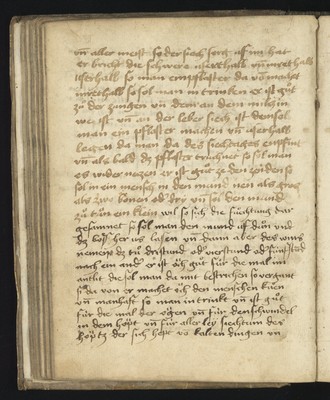 vn̄ aller meist so der siech sorg uff im hat
er bricht die schwere usserthalb vn̄ inrethalb
usserthalb so man ein pflaster da vō macht
inrethalb so sol man in trinken er ist gůt
zů der zungen vn̄ dem an dem milch in
we ist vn̄ an der leber siech ist dem sol
man ein pflaster machen vn̄ usserthalb
legen da man da des siechtages enpfint
vn̄ als bald dz pflaster truchnet so sol man
es wider nezen er ist gůt ze den zenden so
sol in ein mensch in den mund nen als gros
als zwo bonen od' dry vn̄ sol den mund
zů tůn ein klein wil so sich die füchtung dar
gesamnet so sol man den mund uff tůn vnd
dz bös her us lasen vn̄ dann aber des wins
nemen dz tů dristund od' vierstund od' fünfstund
nach ein and' er ist och gůt für die mal im
antlit die sol man da mit bestrichen so vergant
si da von er machet och den menschen kün
vn̄ manhaft so man in trinkt vn̄ ist gůt
für die mal der ogen vn̄ für den schwindel
in dem hopt vn̄ für aller ley siechtum des
hoptz der sich hept vō kalten dingen vn̄